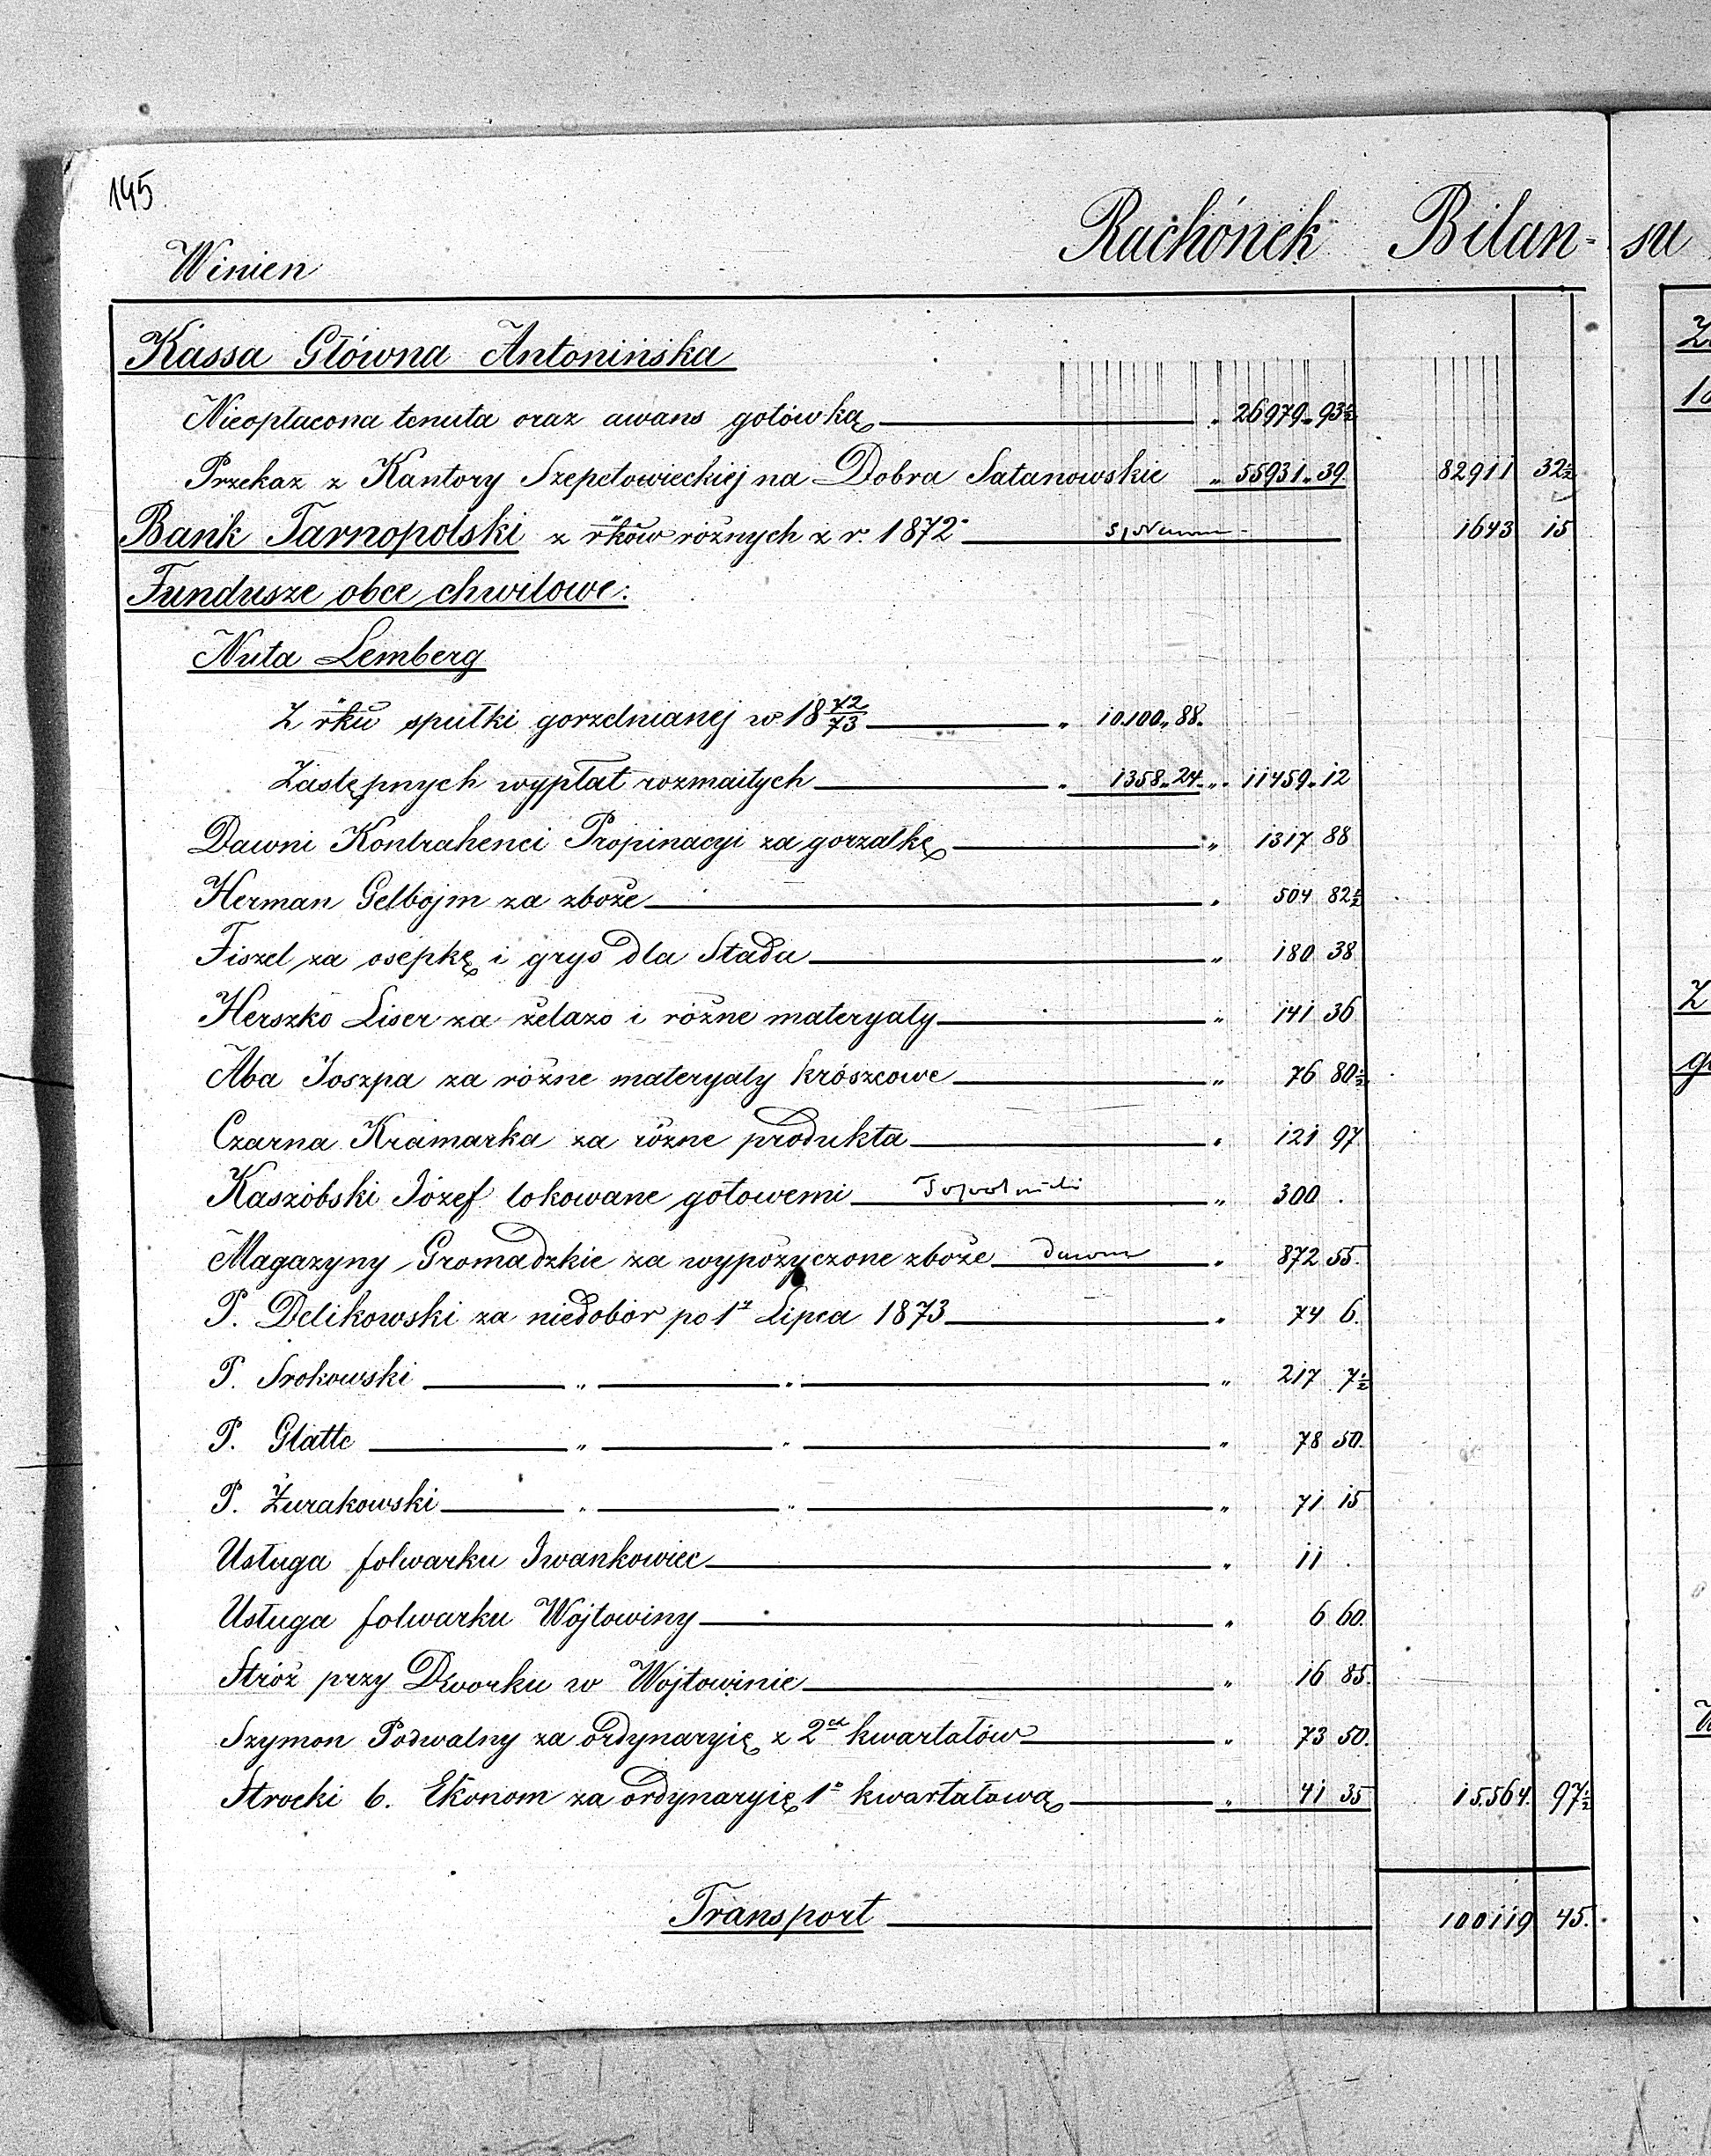 145
Winien Rachónek Bilan- su
Kassa Główna Antonińska
Nieopłacona tenuta oraz awans gotówką „ 26979„93½
Przekaz z Kantory Szepetowieckiej na Dobra Satanowskie „ 55931„39. 82911 32½
Bank Tarnopolski z rków różnych z r. 1872 1643 15
Fundusze obce chwilowe:
Nuta Lemberg
Z rku spułki gorzelnianej w 18 72/73 „ 10.100„88.
Zastępnych wypłat rozmaitych „ 1358„24„ „ 11459„12
Dawni Kontrahenci Propinacyi za gorzałkę „ 1317 88
Herman Gelbojm za zboże „ 504 82½
Fiszel za osepkę i grys dla Stada „ 180 38
Herszko Liser za żelazo i różne materyały „ 141 36
Aba Joszpa za różne materyały krószcowe „ 76 80½
Czarna Kramarka za różne produkta „ 121 97
Kaszóbski Józef lokowane gotowemi „ 300 .
Magazyny Gromadzkie za wypożyczone zboże dawne „ 872 55.
P. Delikowski za niedobór po 1 Lipca 1873 „ 74 6.
P. Srokowski „ „ „ 217 7½
P. Glatte „ „ „ 78 50.
P. Żurakowski „ „ „ 71 15
Usługa folwarku Iwankowiec „ 11 .
Usługa folwarku Wojtowiny „ 6 60.
Stróż przy Dworku w Wojtowinie „ 16 85.
Szymon Podwalny za ordynaryię z 2ch kwartałów „ 73 50.
Strocki b. Ekonom za ordynaryię 1o kwartałową „ 41 35 15.564. 97½
Transport 100119 45.